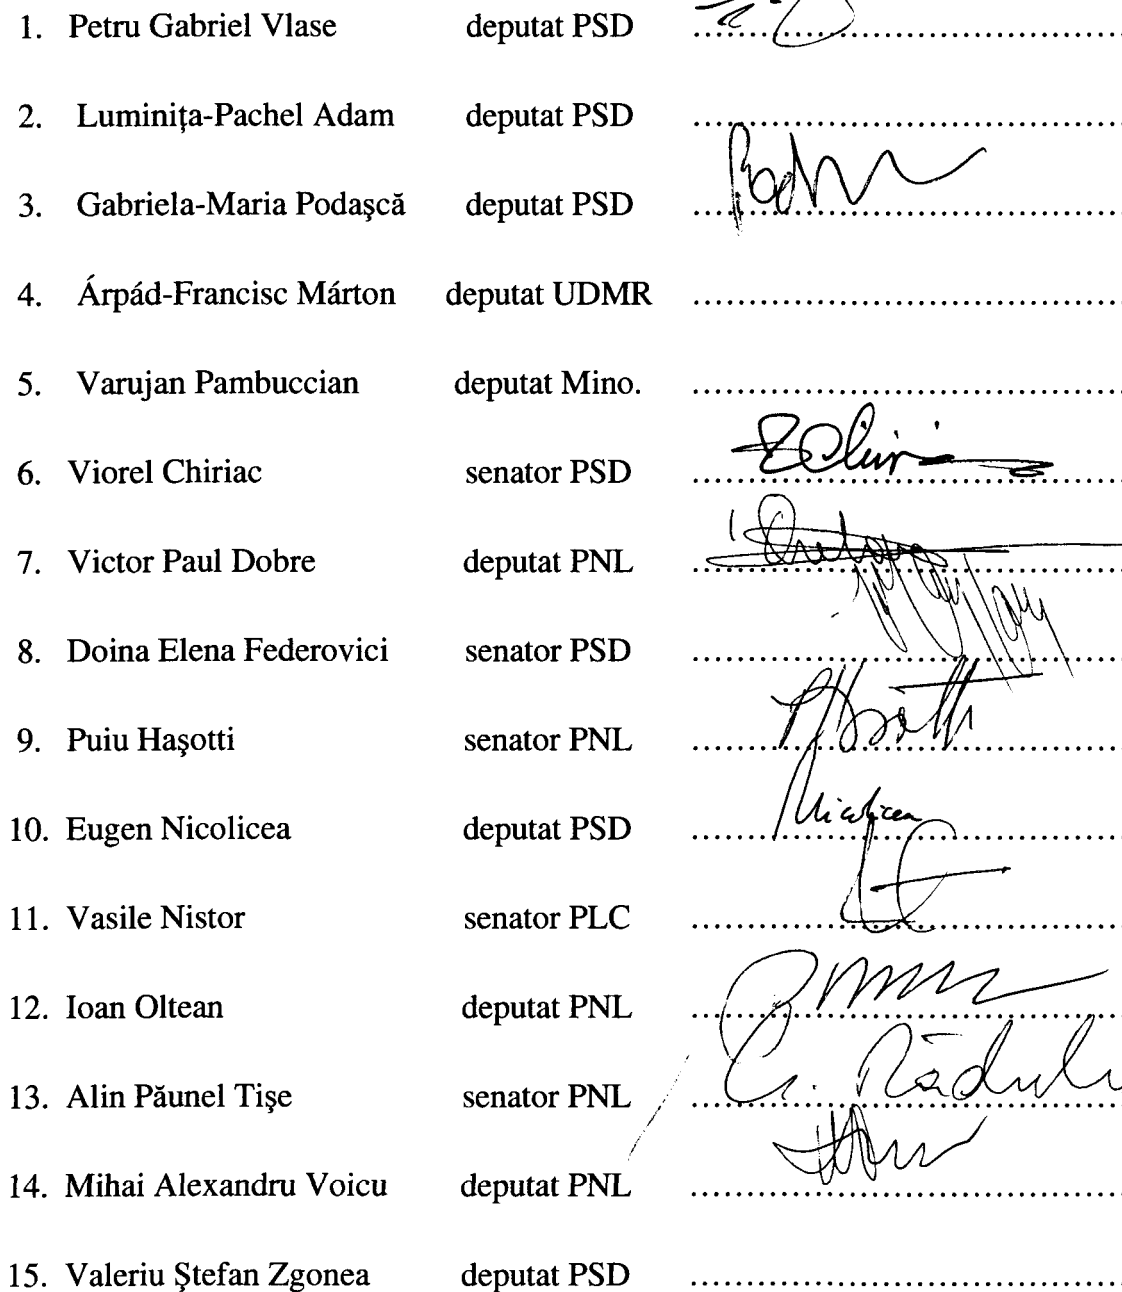 1. Petru Gabriel Vlase deputat PSD ........................................
2. Luminiţa-Pachel Adam deputat PSD ........................................
3. Gabriela-Maria Podaşcă deputat PSD ........................................
4. Árpád-Francisc Márton deputat UDMR ........................................
5. Varujan Pambuccian deputat Mino. ........................................
6. Viorel Chiriac senator PSD ........................................
7. Victor Paul Dobre deputat PNL ........................................
8. Doina Elena Federovici senator PSD ........................................
9. Puiu Haşotti senator PNL ........................................
10. Eugen Nicolicea deputat PSD ........................................ Nicolicea
11. Vasile Nistor senator PLC ........................................
12. Ioan Oltean deputat PNL ........................................
13. Alin Păunel Tişe senator PNL ........................................
14. Mihai Alexandru Voicu deputat PNL ........................................
15. Valeriu Ştefan Zgonea deputat PSD ........................................